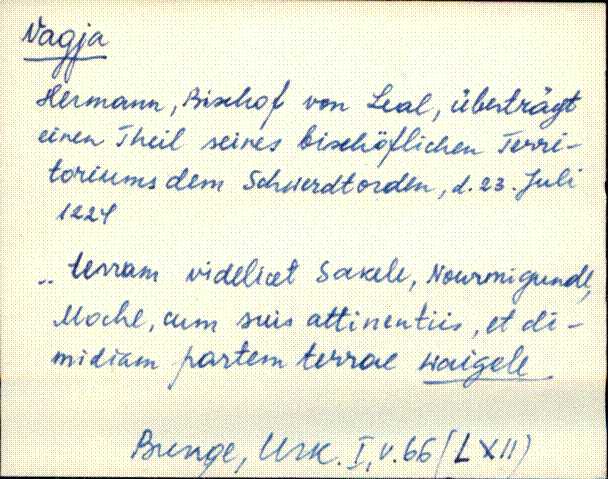 Vagja
Hermann, Bischof von Leal, überträgt
einen Theil seines bischöflichen Terri-
toriums dem Schwerdtorden, d. 23. Juli
1224
.. terram videlicet Sakele, Nourmigunde,
Moche, cum suis attinentiis, et di-
midiam partem terrae Waigele
Bunge, Urk. I, v. 66 (LXII)